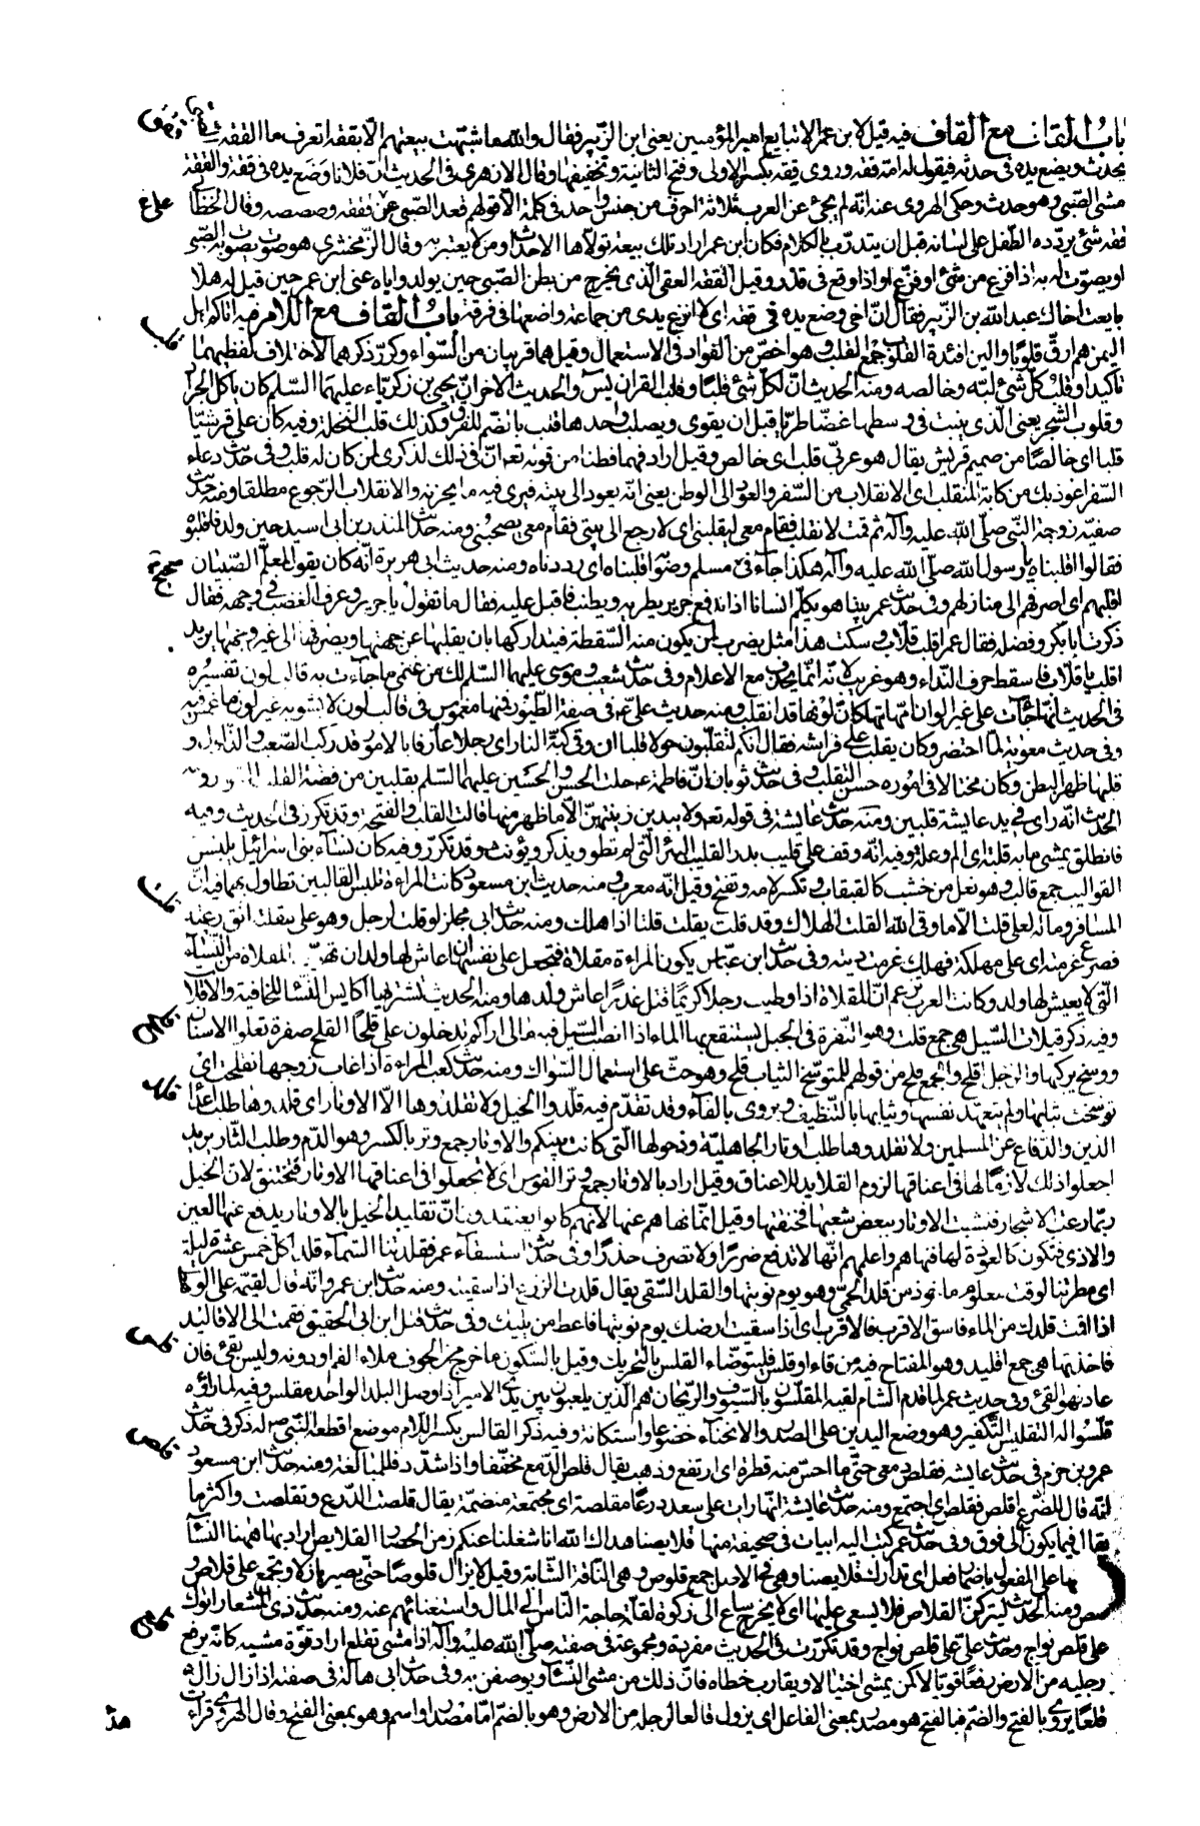 باب القاف مع القاف فيه قيل لابن عمر الا تبايع امير المؤمنين يعنى ابن الزبير فقال والله ما شبهت بيعتهم الا بققة اتعرف ما الققة الصبى
يحدث ويضع يده فى حدثه فيقول له امه ققة وروى ققة بكسر الاولى وفتح الثانية وتخفيفها وقال الازهرى فى الحديث ان فلانا وضع يده فى ققة والققة
مشى الصبى وهو حدث وحكى الهروى عنه انه لم يجئ عن العرب ثلاثة احرف من جنس واحد فى كلمة الا قولهم قعد الصبى على ققة وصصصه وقال الخطابى
ققة شئ يردده الطفل على لسانه قبل ان يتدرب بالكلام فكان ابن عمر اراد تلك بيعة تولاها الاحداث ومن لا يعتبر به وقال الزمخشرى هو صوت يصوت به الصبى
او يصوت له به اذا فزع من شئ او فزع او اذا وقع فى قذر وقيل الققة العقى الذى يخرج من بطن الصبى حين يولد واياه عنى ابن عمر حين قيل له هلا
بايعت اخاك عبد الله بن الزبير فقال ان اخى وضع يده فى ققة اى لا انزع يدى من جماعة واضعها فى فرقة باب القاف مع اللام فيه اتاكم اهل
اليمن هم ارق قلوبا والين افئدة القلوب جمع القلب وهو اخص من الفؤاد فى الاستعمال وقيل هما قريبان من السواء وكرر ذكرهما لاختلاف لفظيهما
تاكيدا وقلب كل شئ لبه وخالصه ومنه الحديث ان لكل شئ قلبا وقلب القران يس والحديث الاخر ان يحيى بن زكرياء عليهما السلم كان ياكل الجراد
وقلوب الشجر يعنى الذى ينبت فى وسطها غضا طريا قبل ان يقوى ويصلب واحدها قلب بالضم للفرق وكذلك قلب النخلة وفيه كان على قرشيا
قلبا اى خالصا من صميم قريش يقال هو عربى قلب اى خالص وقيل اراد فهما فطنا من قوله تعه ان فى ذلك لذكرى لمن كان له قلب وفى حدث دعاء
السفر اعوذ بك من كابة المنقلب اى الانقلاب من السفر والعود الى الوطن يعنى انه يعود الى بيته فيرى فيه ما يحزنه والانقلاب الرجوع مطلقا ومنه حدث
صفية زوجة النبى صلى الله عليه وآله ثم قمت لانقلب فقام معى ليقلبنى اى لارجع الى بيتى فقام معى يصحبنى ومنه حدث المنذر بن ابى اسيد حين ولد فاقلبوه
فقالوا اقلبناه يا رسول الله صلى الله عليه وآله هكذا جاء فى مسلم وصوابه قلبناه اى رددناه ومنه حديث ابى هريرة انه كان يقول لمعلم الصبيان
اقلبهم اى اصرفهم الى منازلهم وفى حدث عمر بينا هو يكلم انسانا اذ اندفع جرير يطريه ويطنب فاقبل عليه فقال ما تقول يا جرير وعرف الغضب فى وجهه فقال
ذكرت ابا بكر وفضله فقال عمر اقلب قلاب وسكت هذا مثل يضرب لمن يكون منه السقطة فيتداركها بان يقلبها عن جهتها ويصرفها الى غير معناها يريد
اقلب يا قلاب فاسقط حرف النداء وهو غريب لانه انما يحذف مع الاعلام وفى حدث شعيب وموسى عليهما السلم لك من غنمى ما جاءت به قالب لون تفسيره
فى الحديث انها جاءت على غير الوان امهاتها كان لونها قد انقلب ومنه حديث على عه فى صفة الطيور فمنها مغموس فى قالب لون لا يشوبه غير لون ما غمس فيه
وفى حديث معوية لما احتضر وكان يقلب على فراشه فقال انكم لتقلبون حولا قلبا ان وقى كبة النار اى رجلا عارفا بالامور قد ركب الصعب والذلول و
قلبها ظهرا لبطن وكان محتالا فى اموره حسن التقلب وفى حدث ثوبان ان فاطمة عه حلت الحسن والحسين عليهما السلم بقلبين من فضة القلب
الحديث انه راى فى يد عايشة قلبين ومنه حدث عايشة فى قوله تعه ولا يبدين زينتهن الا ما ظهر منها قالت القلب والفتخة وقد تكرر فى الحديث وفيه
فانطلق يمشى ما به قلبة اى الم وعلة وفيه انه وقف على قليب بدر القليب البئر التى لم تطو ويذكر ويؤنث وقد تكرر وفيه كان نساء بنى اسرائيل يلبسن
القواليب جمع قالب وهو نعل من خشب كالقبقاب وتكسر لامه وتفتح وقيل انه معرب ومنه حديث ابن مسعود كانت المراءة تلبس القالبين تطاول بهما فيه ان
المسافر وماله لعلى قلت الا ما وقى الله القلت الهلاك وقد قلت يقلت قلتا اذا هلك ومنه حدث ابى مجلز لو قلت لرجل وهو على مقلتة اتق رعته
فصرع غرمته اى على مهلكة فهلك غرمت ديته وفى حدث ابن عباس يكون المراءة مقلاة فتجعل على نفسها ان عاش لها ولد ان تهوده المقلاة من النساء
التى لا يعيش لها ولد وكانت العرب تزعم ان المقلاة اذا وطيت رجلا كريما قتل غدرا عاش ولدها ومنه الحديث تشتريها اكايس النساء للخافية والاقلات
وفيه ذكر قلات السيل هى جمع قلت وهو النقرة فى الجبل يستنقع بها الماء اذا انصب السيل فيه ما لى اراكم تدخلون على قلحا القلح صفرة تعلو الاسنان
ووسخ يركبها والرجل اقلح والجمع قلح من قولهم للمتوسخ الثياب قلح وهو حث على استعمال السواك ومنه حدث كعب المراءة اذا غاب زوجها تقلحت اى
توسخت ثيابها ولم يتعهد نفسها وثيابها بالتنظيف ويروى بالفاء وقد تقدم فيه قلدوا الخيل ولا تقلدوها الاوتار اى قلدوها طلب اعداء
الدين والدفاع عن المسلمين ولا تقلدوها طلب اوتار الجاهلية وذحولها التى كانت بينكم والاوتار جمع وتر بالكسر وهو الدم وطلب الثار يريد
اجعلوا ذلك لازما لها فى اعناقها لزوم القلايد للاعناق وقيل اراد بالاوتار جمع وتر القوس اى لا تجعلوا فى اعناقها الاوتار فتختنق لان الخيل
ربما رعت الاشجار فنشبت الاوتار ببعض شعبها فخنقتها وقيل انما نهاهم عنها لانهم كانوا يعتقدون ان تقليد الخيل بالاوتار يدفع عنها العين
والاذى فتكون كالعوذة لها فنهاهم واعلمهم انها لا تدفع ضررا ولا تصرف حذرا وفى حدث استسقاء عمر فقلدتنا السماء قلدا كل خمس عشرة ليلة
اى مطرتنا لوقت معلوم ماخوذ من قلد الحمى وهو يوم نوبتها والقلد السقى يقال قلدت الزرع اذا سقيته ومنه حدث ابن عمرو انه قال لقيمه على الوهط
اذا اقمت قلدك من الماء فاسق الاقرب فالاقرب اى اذا سقيت ارضك يوم نوبتها فاعط من يليك وفى حدث قتل ابن ابى الحقيق فقمت الى الاقاليد
فاخذتها هى جمع اقليد وهو المفتاح فيه من قاء او قلس فليتوضاء القلس بالتحريك وقيل بالسكون ما خرج من الجوف ملاء الفم او دونه وليس بقئ فان
عاد فهو القئ وفى حديث عمر لما قدم الشام لقيه المقلسون بالسيوف والريحان هم الذين يلعبون بين يدى الامير اذا وصل البلد الواحد مقلس وفيه لما راوه
قلسوا له التقليس التكفير وهو وضع اليدين على الصدر والانحناء خضوعا واستكانة وفيه ذكر القالس بكسر اللام موضع اقطعه النبى صه له ذكر فى حدث
عمرو بن حزم فى حدث عايشه فقلص دمعى حتى ما احس منه قطرة اى ارتفع وذهب يقال قلص الدمع مخففا واذا شدد فللمبالغة ومنه حدث ابن مسعود
انه قال للضرع اقلص فقلص اى اجتمع ومنه حدث عايشة انها رات على سعد درعا مقلصة اى مجتمعة منضمة يقال قلصت الدرع وتقلصت واكثر ما
يقال فيما يكون الى فوق وفى حدث عمر كتب اليه ابيات فى صحيفة منها قلايصنا هداك الله انا شغلنا عنكم زمن الحصار القلايص اراد بها ههنا النساء
ونصبها على المفعول باضمار فعل اى تدارك قلايصنا وهى فى الاصل جمع قلوص وهى الناقة الشابة وقيل لا يزال قلوصا حتى يصير بازلا وتجمع على قلاص
وقلص ومنه الحديث ليتركن القلاص فلا يسعى عليها اى لا يخرج ساع الى زكوة لقلة حاجة الناس الى المال واستغنائهم عنه ومنه حدث ذى المشعار اتوك
على قلص نواج وحدث على على قلص نواج وقد تكررت فى الحديث مفردة ومجموعة فى صفته صلى الله عليه وآله اذا مشى تقلع اراد قوة مشيه كانه يرفع
رجليه من الارض رفعا قويا لا كمن يمشى اختيالا ويقارب خطاه فان ذلك من مشى النساء ويوصفن به وفى حدث ابى هالة فى صفته اذا زال زال
قلعا يروى بالفتح والضم فبالفتح هو مصدر بمعنى الفاعل اى يزول قالعا لرجله من الارض وهو بالضم اما مصدر او اسم وهو بمعنى الفتح وقال الهروى قرات
هذ